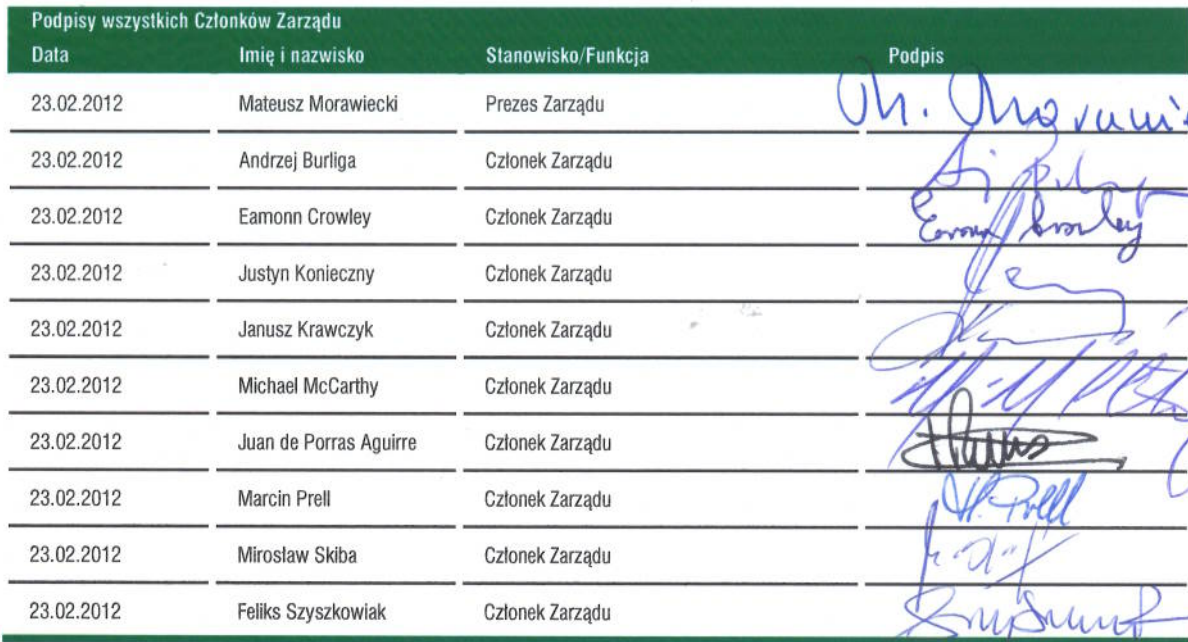 Podpisy wszystkich Członków Zarządu
Data Imię i nazwisko Stanowisko/Funkcja Podpis
23.02.2012 Mateusz Morawiecki Prezes Zarządu
23.02.2012 Andrzej Burliga Członek Zarządu
23.02.2012 Eamonn Crowley Członek Zarządu
23.02.2012 Justyn Konieczny Członek Zarządu
23.02.2012 Janusz Krawczyk Członek Zarządu
23.02.2012 Michael McCarthy Członek Zarządu
23.02.2012 Juan de Porras Aguirre Członek Zarządu
23.02.2012 Marcin Prell Członek Zarządu M. Prell
23.02.2012 Mirosław Skiba Członek Zarządu
23.02.2012 Feliks Szyszkowiak Członek Zarządu